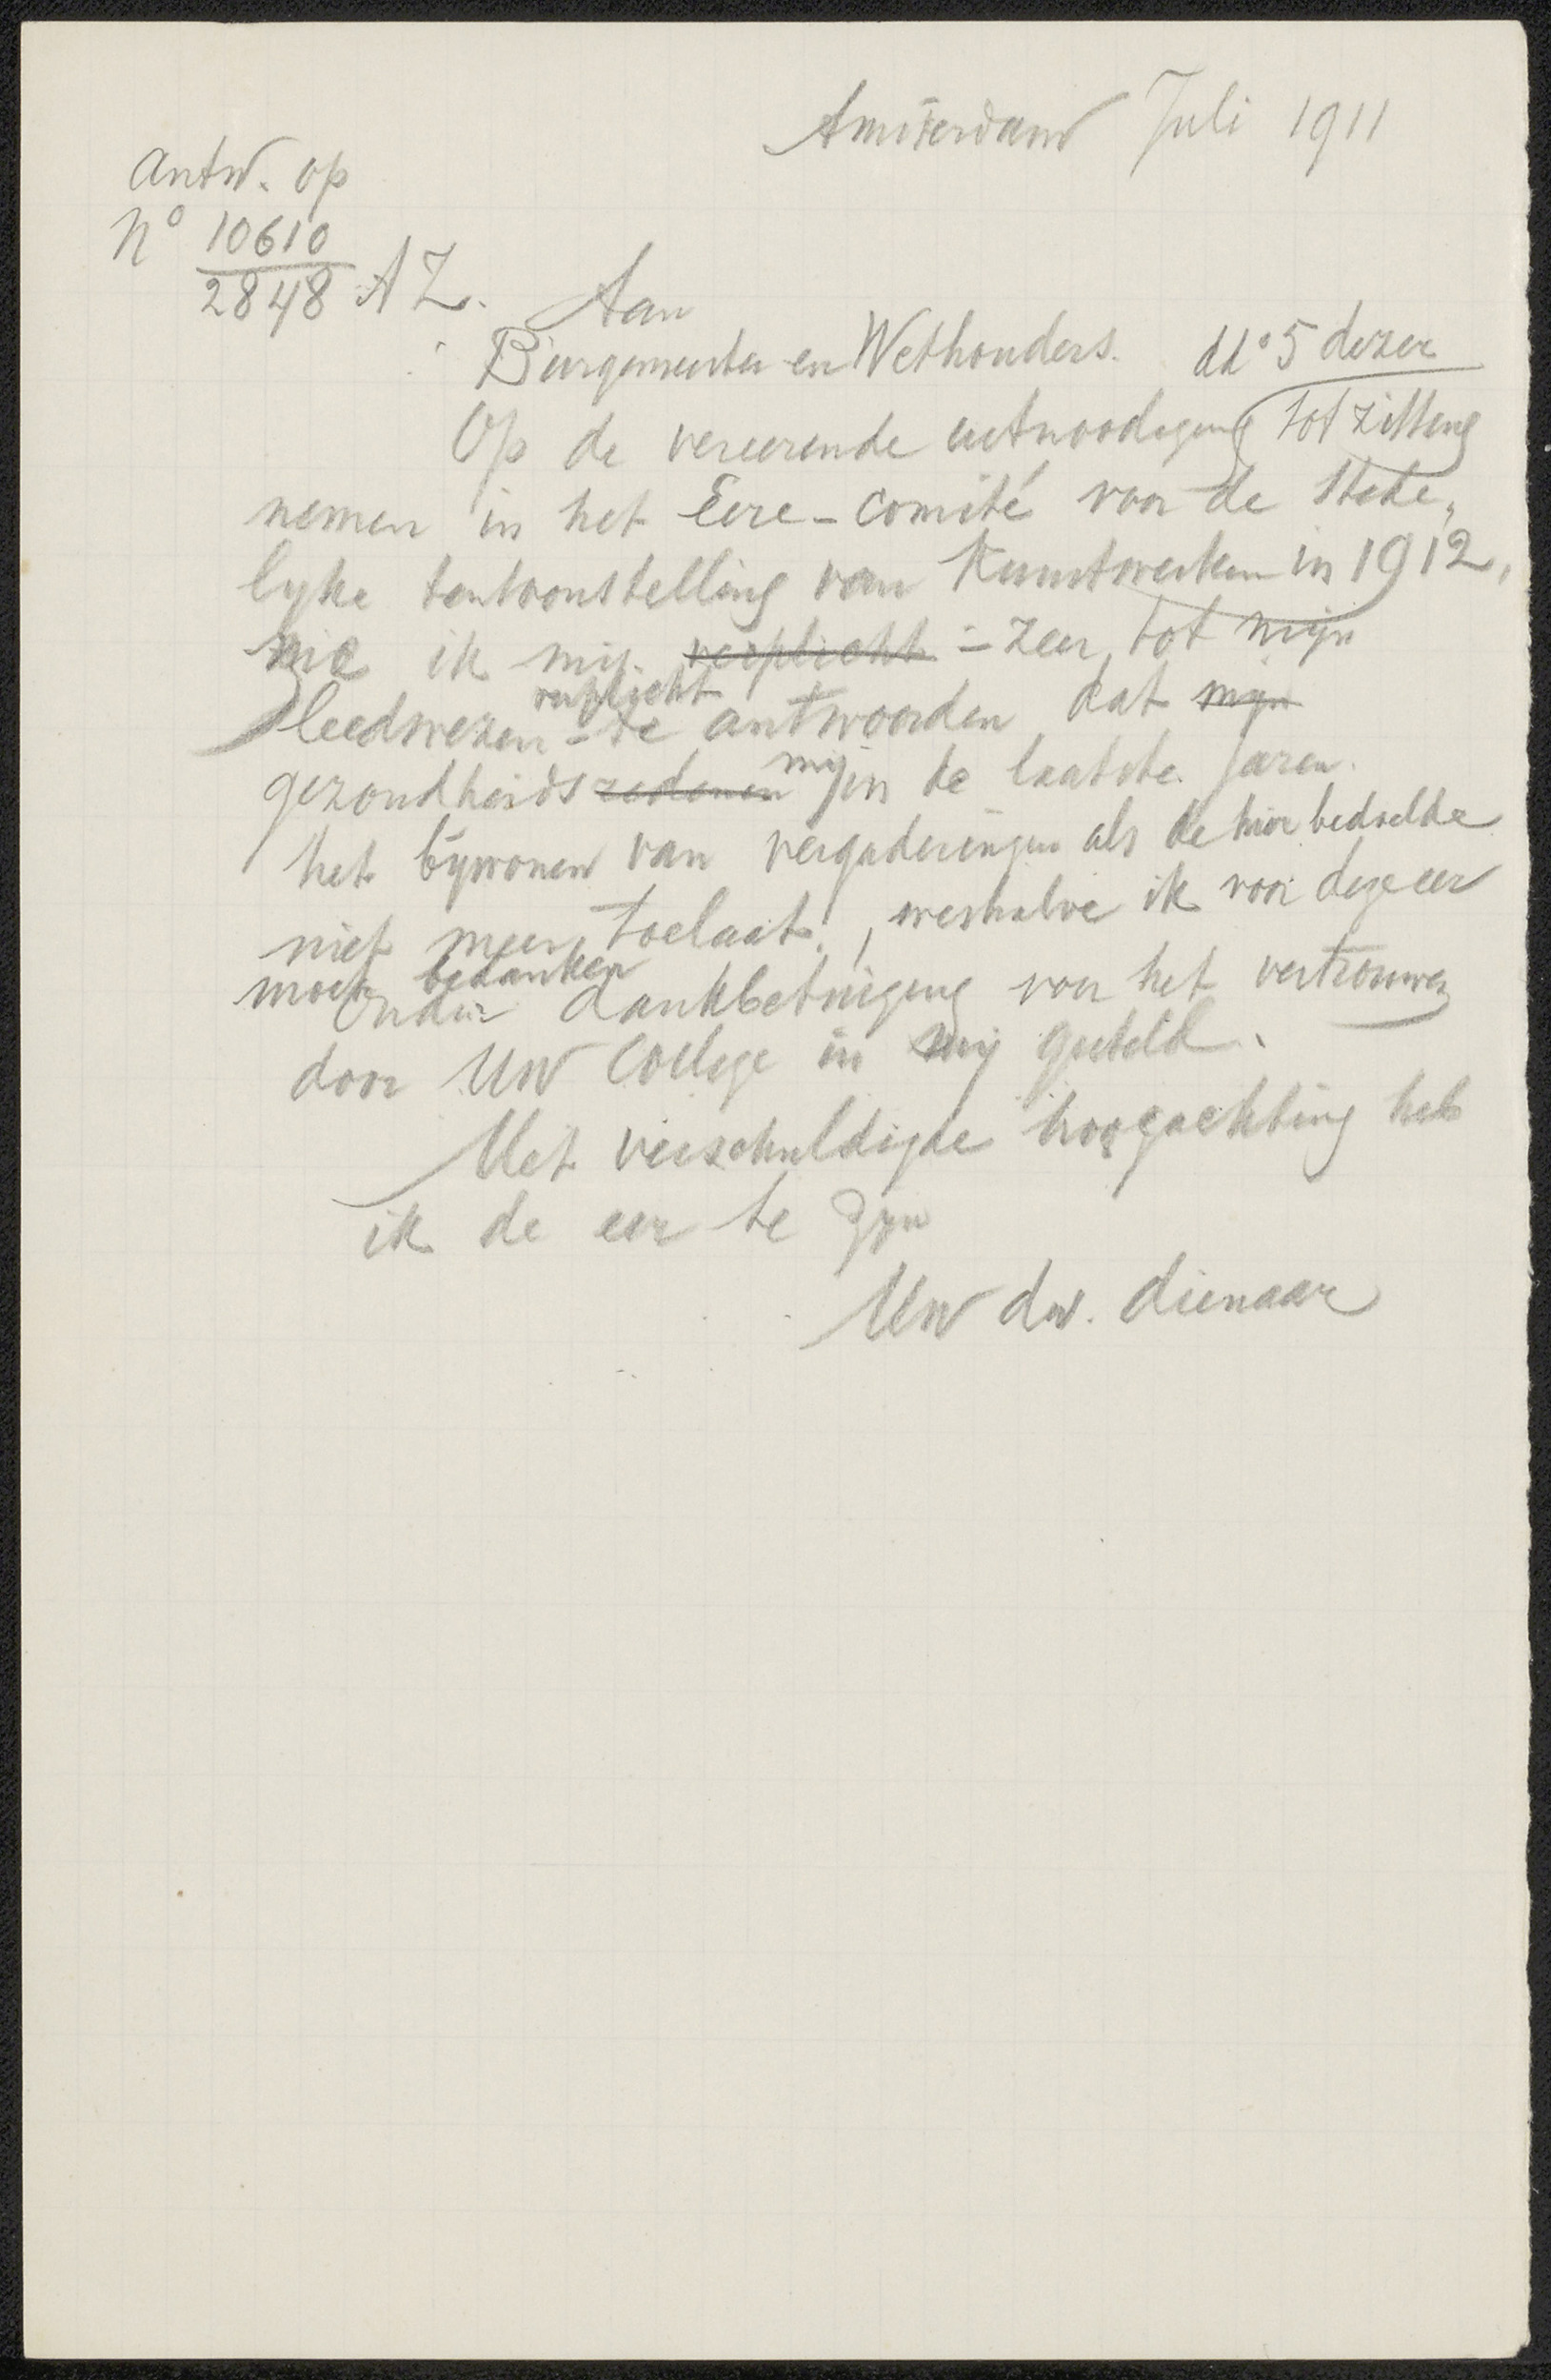 Amsterdam Juli 1911
Antw. op
No 10610
2848 AZ.
Aan
Burgemeester en Wethouders. dd° 5 dezer
Op de vereerende uitnoodiging tot zitting
nemen in het Eere-comité voor de stede„
lyke tentoonstelling van Kunstwerken in 1912,
zie ik mij verplicht - zeer tot mijn
verplicht
leedwezen - te antwoorden dat mijn
gezondheidsredenen mij in de laatste jaren
het bywonen van vergaderingen als de hier bedoelde
niet meer toelaat, weshalve ik voor deze eer
moet bedanken
onder dankbetuiging voor het vertrouwen
door UW College in mij gesteld.
Met verschuldigde hoogachting heb
ik de eer te zyn
UW dw. dienaar